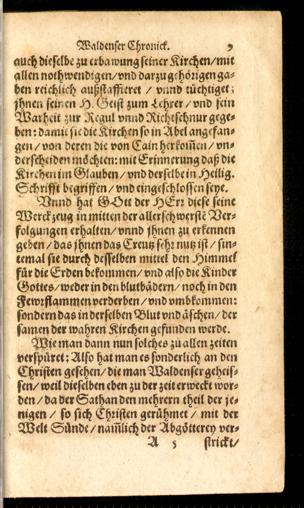 Waldenser Chronick. 9
auch dieselbe zu erbawung seiner Kirchen / mit
allen nothwendigen / vnd darzu gehörigen ga-
ben reichlich außstaffieret / vnnd tüchtiget;
jhnen seinen H. Geist zum Lehrer / vnd sein
Warheit zur Regul vnnd Richtschnur gege-
ben: damit sie die Kirchen so in Abel angefan-
gen / von deren die von Cain herkom̃en / vn-
derscheiden möchten: mit Erinnerung daß die
Kirchen im Glauben / vnd derselb ein Heilig.
Schrifft begriffen / vnd eingeschlossen seye.
Vnnd hat GOtt der HErr diese seine
Werckzeug in mitten der allerschwerste Ver-
folgungen erhalten / vnnd jhnen zu erkennen
geben / das jhnen das Creutz sehr nutz ist / sin-
temal sie durch desselben mittel den Himmel
für die Erden bekommen / vnd also die Kinder
Gottes / weder in den blutbädern / noch in den
Fewrflammen verderben / vnd vmbkommen:
sondern das in derselben Blut vnd äschen / der
samen der wahren Kirchen gefunden werde.
Wie man dann nun solches zu allen zeiten
verspüret: Also hat man es sonderlich an den
Christen gesehen / die man Waldenser geheis-
sen / weil dieselben eben zu der zeit erweckt wor-
den / da der Sathan den mehrern theil der je-
nigen / so sich Christen gerühmet / mit der
Welt Sünde / nam̃lich der Abgötterey ver-
A 5 strickt /